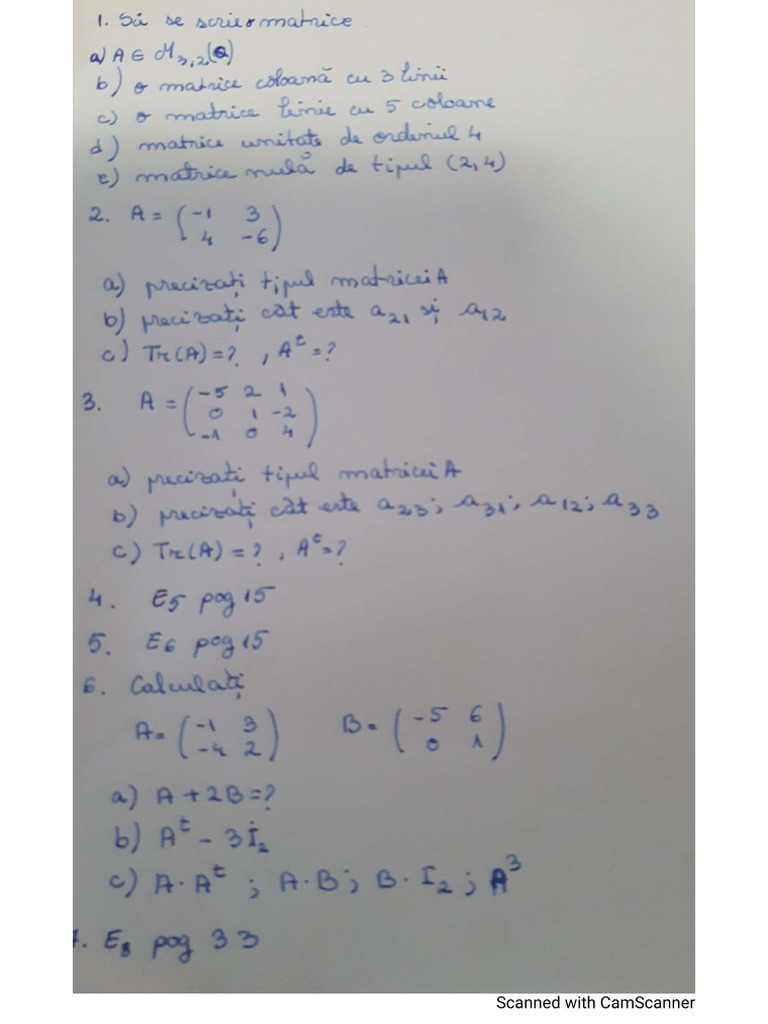 1. Să se scrie o matrice
a) A ∈ M₃,₂(Q)
b) o matrice coloană cu 3 linii
c) o matrice linie cu 5 coloane
d) matrice unitate de ordinul 4
e) matrice nulă de tipul (2,4)
2. A = (-1 3
4 -6)
a) precizați tipul matricei A
b) precizați cât este a₂₁ și a₁₂
c) Tr(A) = ?, Aᵗ = ?
3. A = (-5 2 1
0 1 -2
-1 0 4)
a) precizați tipul matricei A
b) precizați cât este a₂₃; a₃₁; a₁₂; a₃₃
c) Tr(A) = ?, Aᵗ = ?
4. E5 pag 15
5. E6 pag 15
6. Calculați
A = (-1 3 B = (-5 6
-4 2) 0 1)
a) A + 2B = ?
b) Aᵗ - 3I₂
c) A · Aᵗ ; A · B; B · I₂; A³
7. E8 pag 33
Scanned with CamScanner